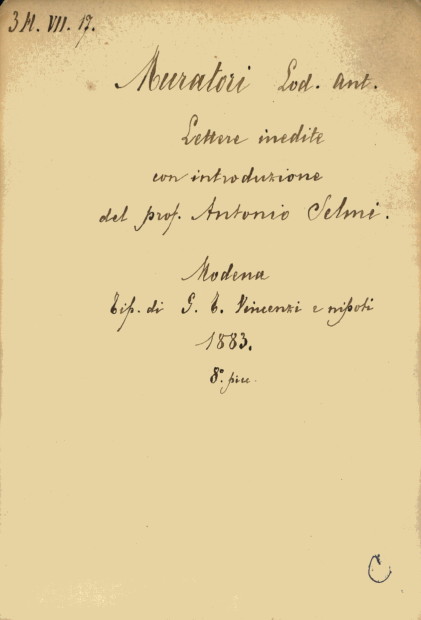 3 H. VII. 17.
Muratori Lod. Ant.
Lettere inedite
con introduzione
del prof. Antonio Selmi.
Modena
Tip. di G. T. Vincenzi e nipoti
1883.
8.° picc.
C